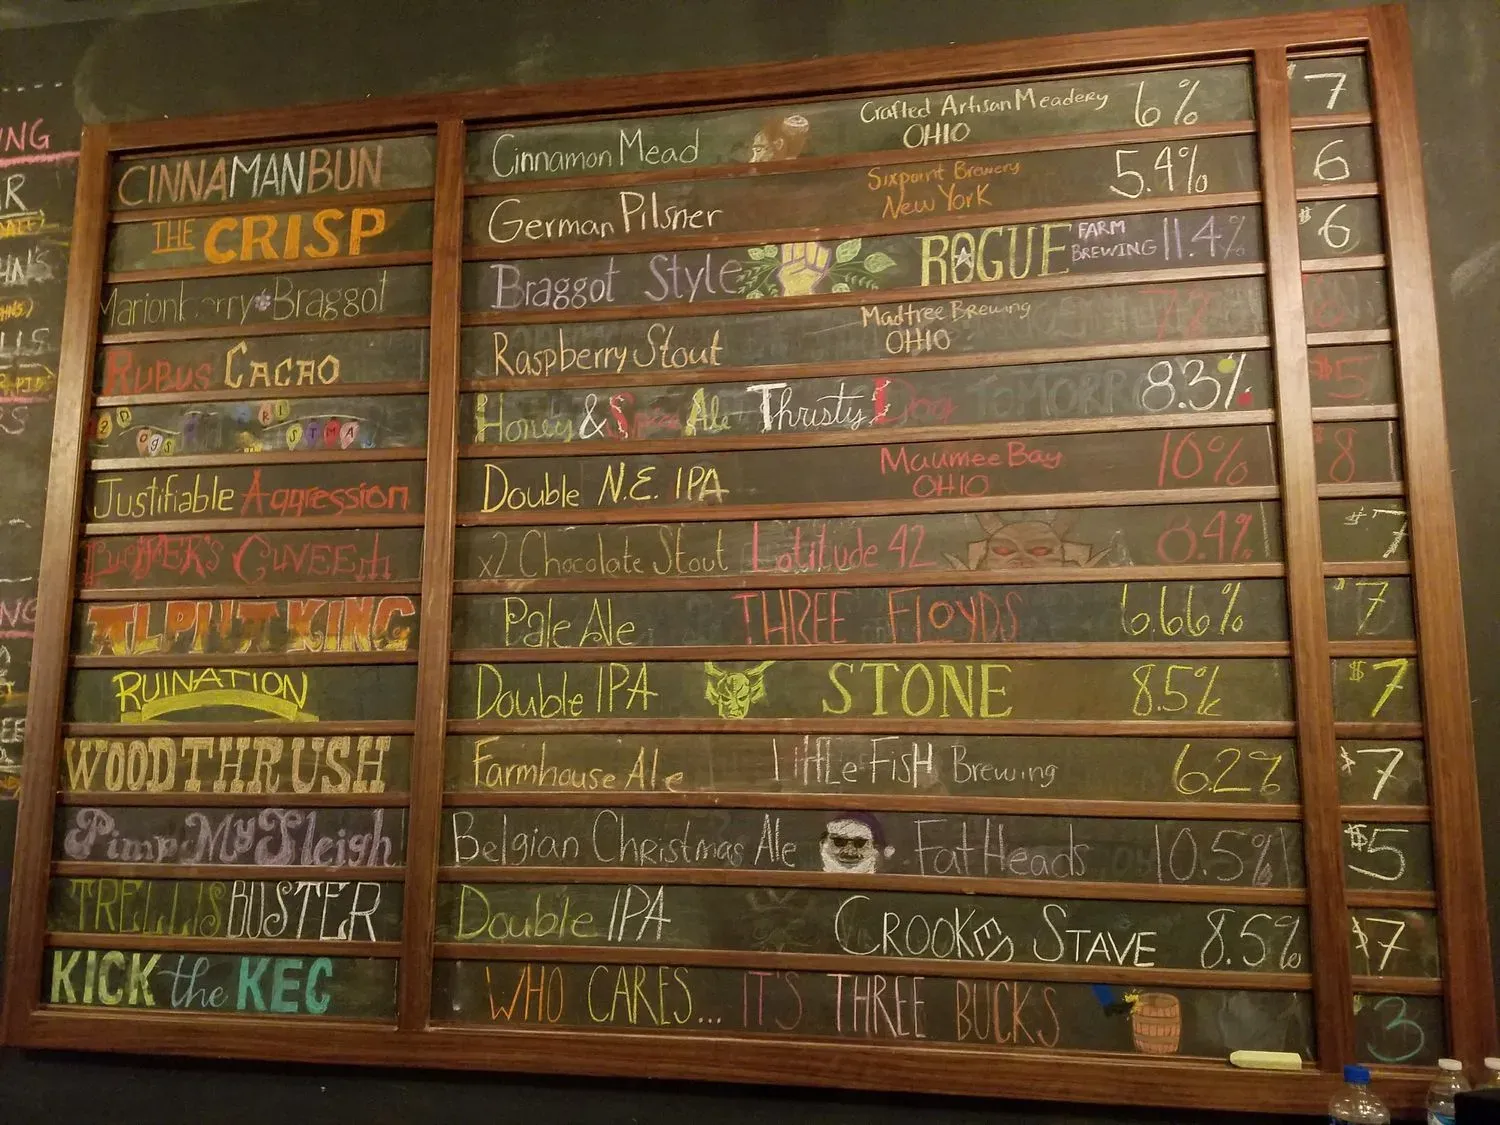 CINNAMANBUN Cinnamon Mead Crafted Artisan Meadery OHIO 6% $7
THE CRISP German Pilsner Sixpoint Brewery New York 5.4% 6
Marionberry Braggot Braggot Style ROGUE FARM BREWING 11.4% $6
RUBUS CACAO Raspberry Stout Madtree Brewing OHIO
Honey & Spice Ale Thristy Dog 8.3% $5
Justifiable Aggression Double N.E. IPA Maumee Bay OHIO 10% 8
CUVEE x2 Chocolate Stout Latitude 42 8.4% $7
KING Pale Ale THREE FLOYDS 6.66% $7
RUINATION Double IPA STONE 8.5% $7
WOODTHRUSH Farmhouse Ale Little Fish Brewing 6.2% $7
Pimp My Sleigh Belgian Christmas Ale Fat Heads 10.5% $5
TRELLISBUSTER Double IPA CROOKED STAVE 8.5% $7
KICK the KEG WHO CARES... IT'S THREE BUCKS 3